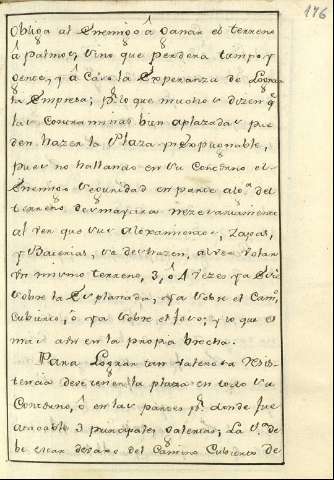 176
obliga al Enemigo â Ganar el terreno
â palmos, sino que perderà tiempo, y
gente, y â Cavo la Esperanza de Lograr
la Empresa; p.r lo que muchos dizen q.e
las contraminas bien aplazadas pue
den hazer la Plaza ynexpugnable,
pues no hallando en su Contorno el
Enemigo seguridad en parte alg.a del
terreno desmayàra nezesariamente
al ver que sus Aloxamientos, Zapas,
y Baterias, se deshazen, al ver volar
un mismo terreno, 3, ô 4 vezes ya
sobre la Esplanada, ya sobre el Cam.o
Cubierto, ô ya sobre el foso; y lo que es
mas aun en la propia brecha.
Para Lograr tan valerosa resis-
tencia deve tener la plaza en todo su
Contorno, ô en las partes p.r donde fue
atacable 3 principales Galerias; La 1.a de
be estar devajo del Camino Cubierto de